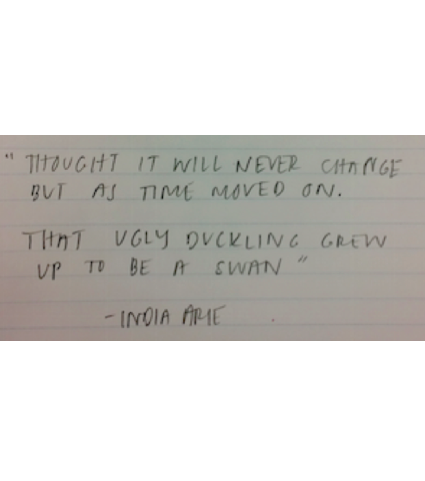 "THOUGHT IT WILL NEVER CHANGE
BUT AS TIME MOVED ON.
THAT UGLY DUCKLING GREW
UP TO BE A SWAN"
-INDIA ARIE